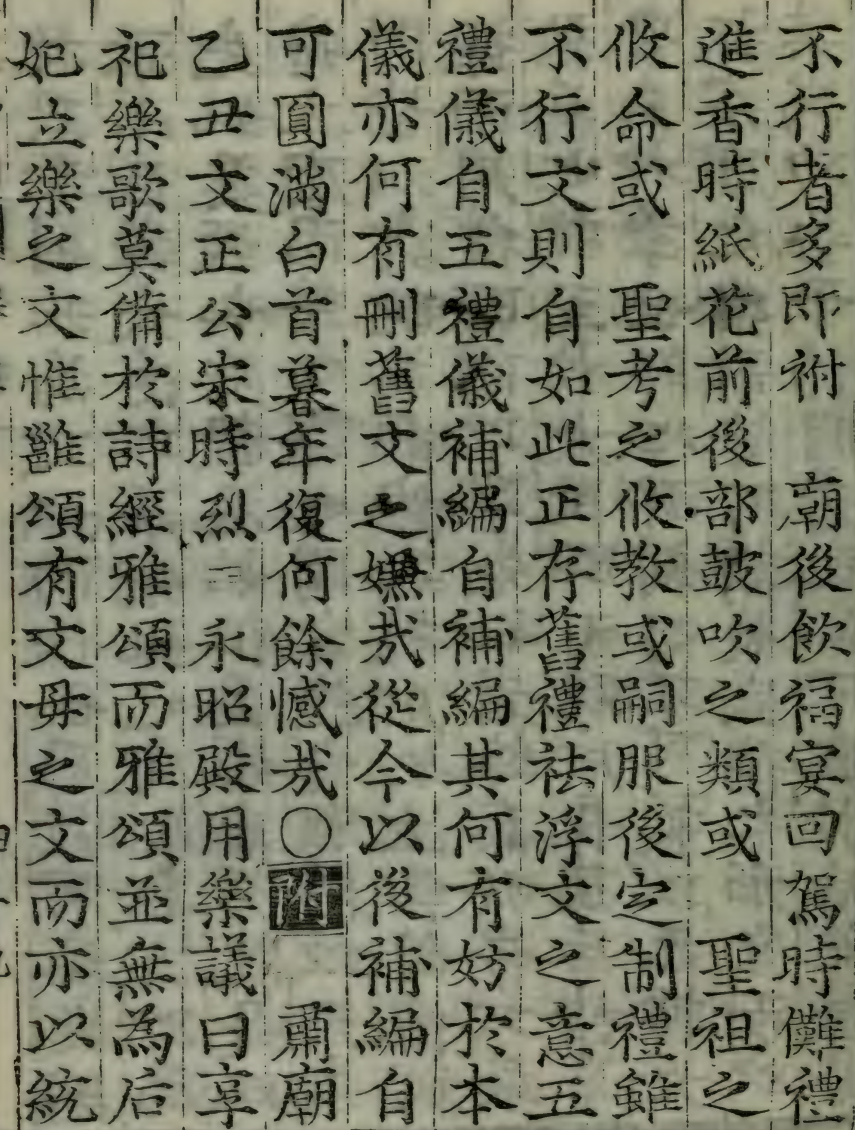 不行者多即祔　廟後飮福宴回駕時儺禮
進香時紙花前後部鼓吹之類或　聖祖之
攸命或　聖考之攸敎或嗣服後定制禮雖
不行文則自如此正存舊禮祛浮文之意五
禮儀自五禮儀補編自補編其何有妨於本
儀亦何有刪舊文之嫌㢤從今以後補編自
可圓滿白首暮年復何餘憾㢤○附　肅廟
乙丑文正公宋時烈　永昭殿用樂議曰享
祀樂歌莫備於詩經雅頌而雅頌並無為后
妃立樂之文惟雝頌有文毋之文而亦以統